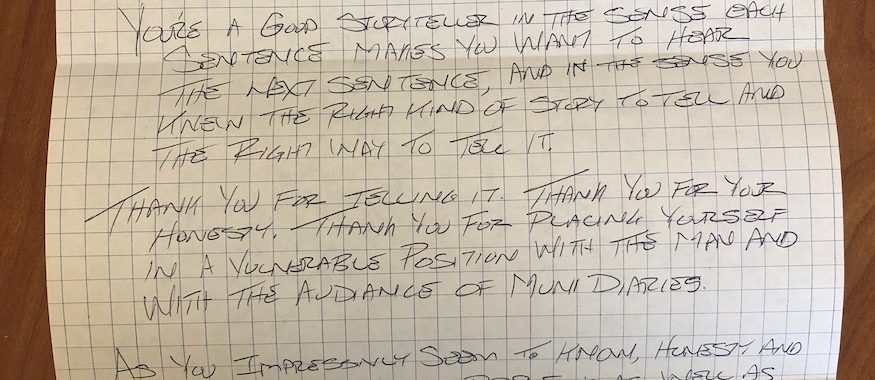 YOU'RE A GOOD STORYTELLER IN THE SENSE EACH
SENTENCE MAKES YOU WANT TO HEAR
THE NEXT SENTENCE, AND IN THE SENSE YOU
KNEW THE RIGHT KIND OF STORY TO TELL AND
THE RIGHT WAY TO TELL IT.
THANK YOU FOR TELLING IT. THANK YOU FOR YOUR
HONESTY. THANK YOU FOR PLACING YOURSELF
IN A VULNERABLE POSITION WITH THE MAN AND
WITH THE AUDIANCE OF MUNI DIARIES.
AS YOU IMPRESSIVLY SEEM TO KNOW, HONESTY AND
WELL AS